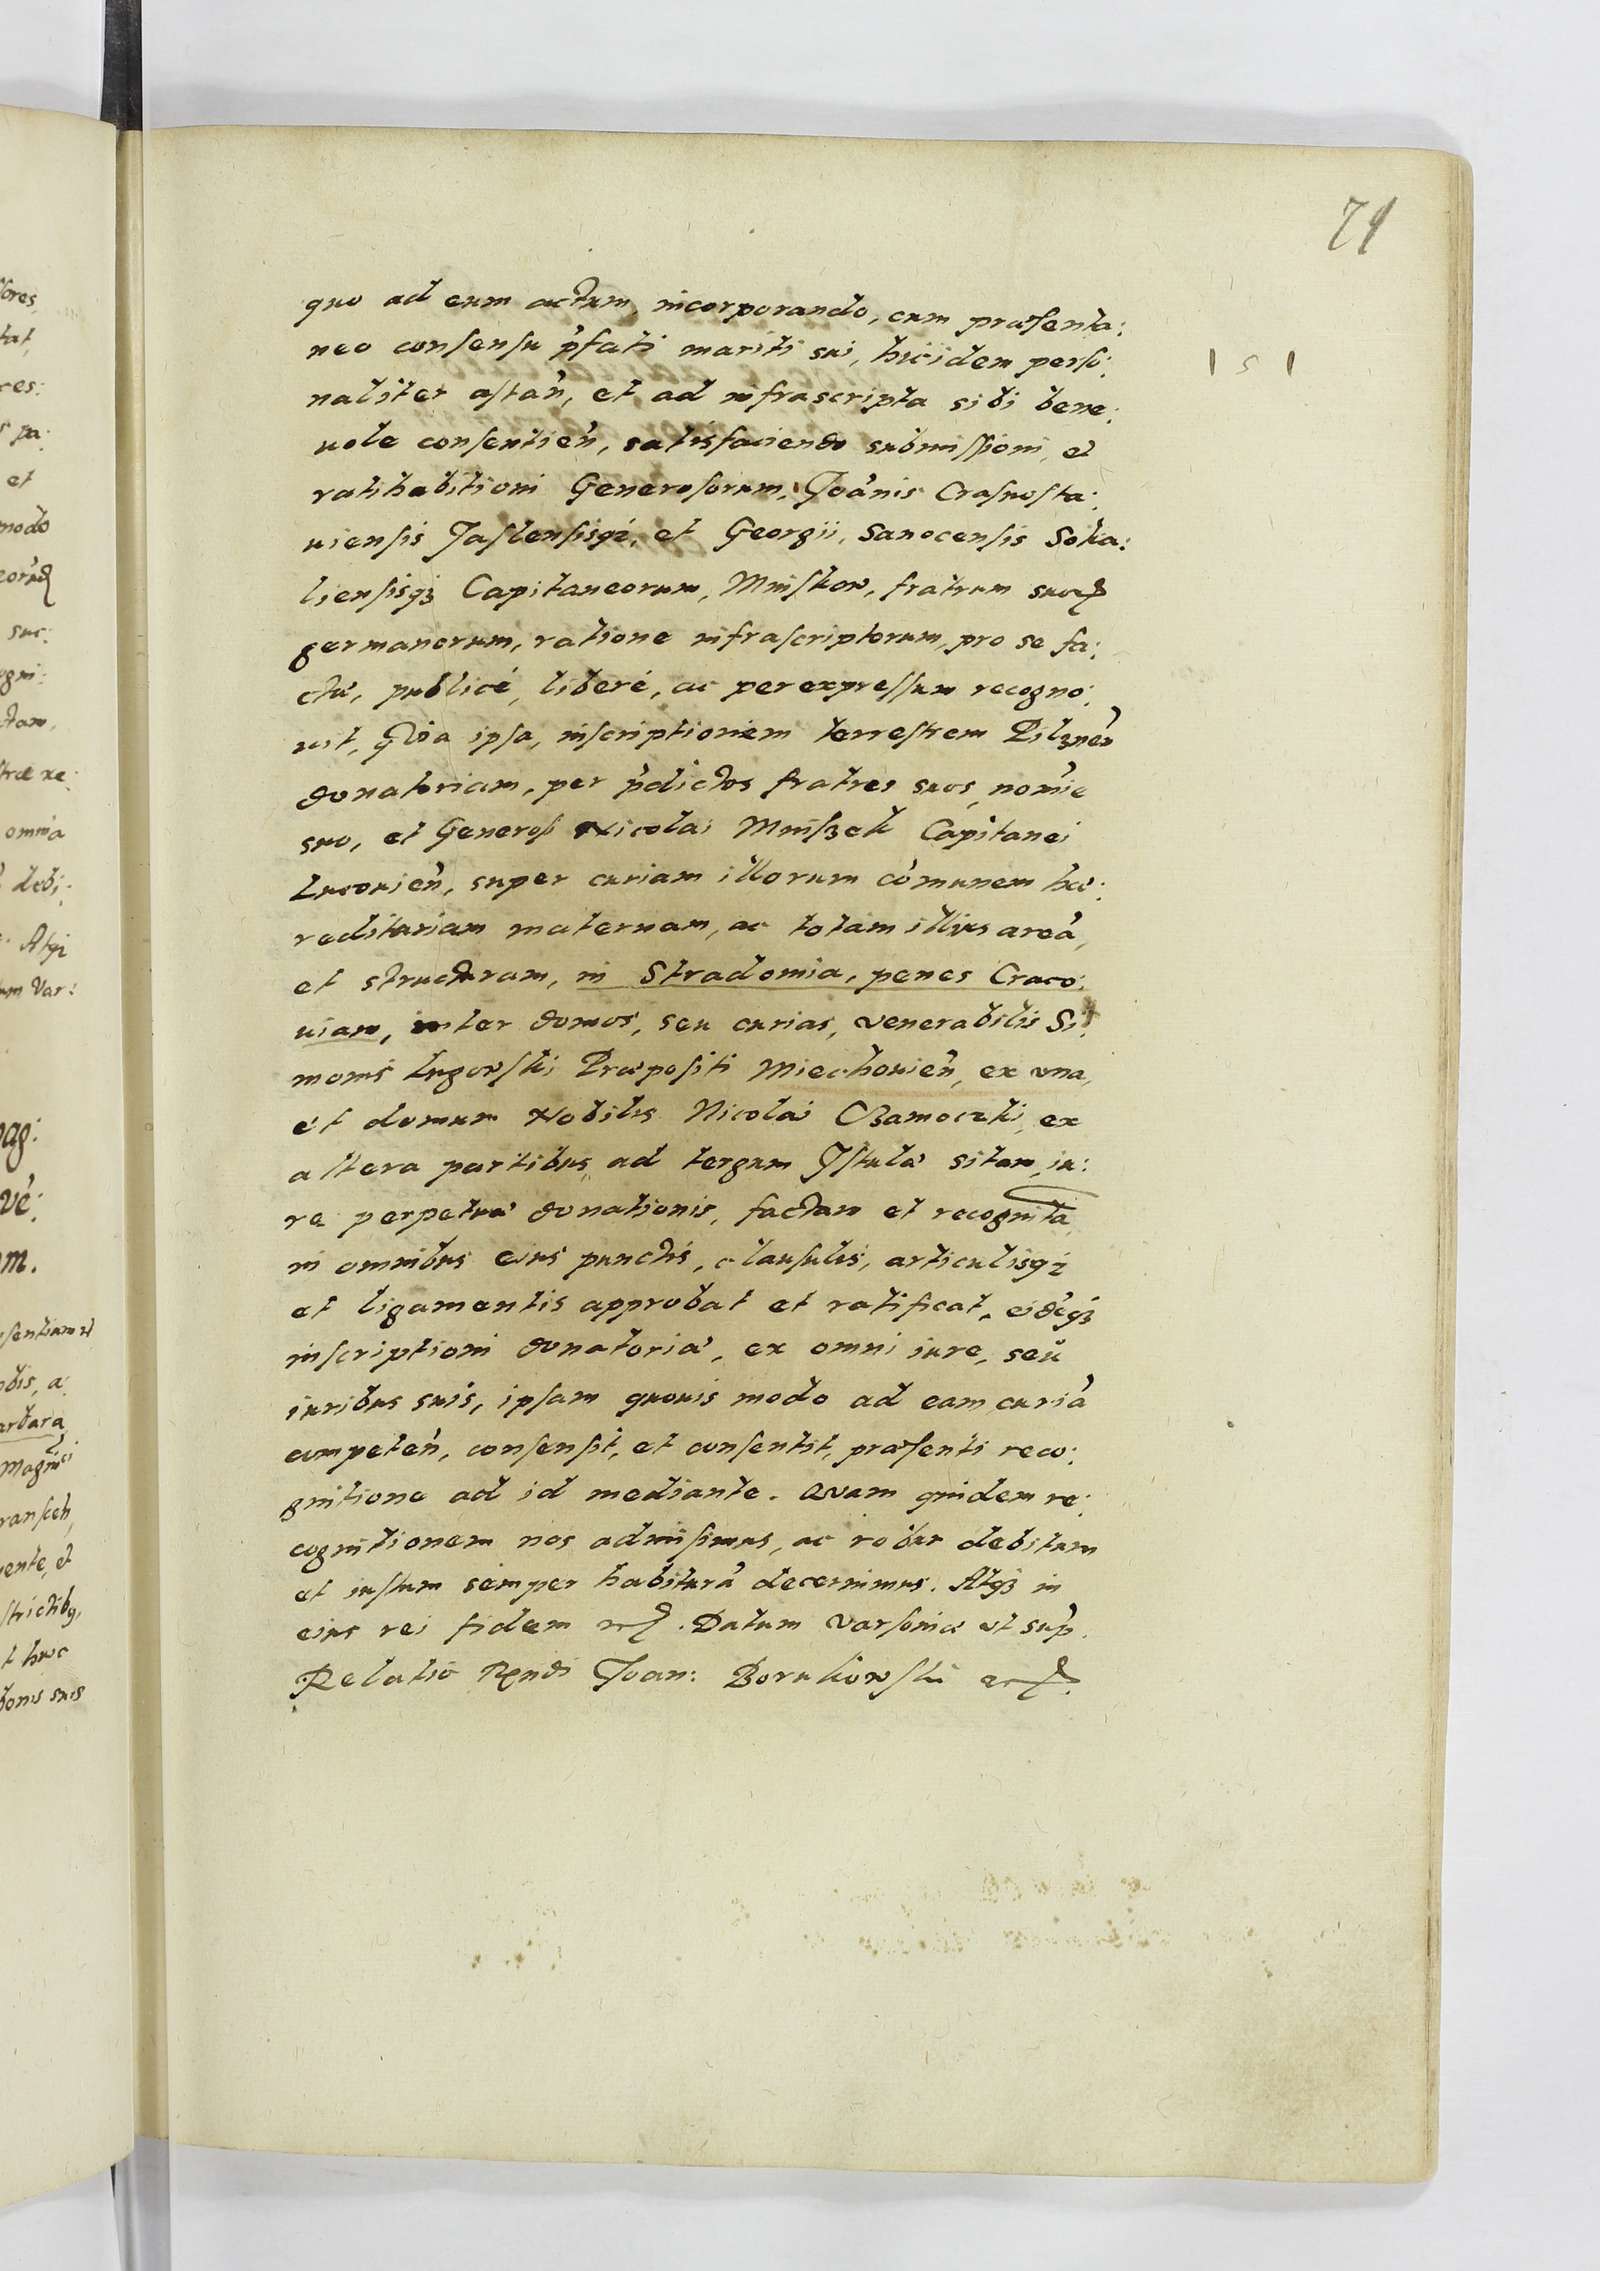 71
151
quo ad eum actum, incorporando, cum præsenta:
neo consensu p̀fati mariti sui, hicidem perso:
naliter astan̄, et ad infrascripta sibi bene:
uole consentien̄, satisfaciendo submissioni, et
ratihabitioni Generosorum, Joānis Crasnosta:
uiensis Jaslensisqȝ, et Georgii, Sanocensis Soka:
liensisqȝ Capitaneorum, Mnisków, fratrum suoꝝ
germanorum, ratione infrascriptorum, pro se fa:
ctā, publicè, liberè, ac per expressum recogno:
uit, Quia ipsa, inscriptionem terrestrem Pilznen̄
donatoriam, per p̀dictos fratres suos, noīe
suo, et Generosi Nicolai Mniszek Capitanei
Lucouien̄, super curiam illorum cōmunem hæ:
reditariam maternam, ac totam illius areā,
et structuram, in Stradomia, penes Craco:
uiam, inter domos, seu curias, venerabilis Si:
monis Lugowski Præpositi Miechouien̄, ex vna,
et domum Nobilis Nicolai Czamoczki, ex
altera partibus, ad tergum Istulæ sitam, iu:
re perpetuæ donationis, factam et recognitā,
in omnibus eius punctis, clausulis, articulisqȝ
et ligamentis approbat et ratificat, eidēqȝ
inscriptioni donatoriæ, ex omni iure, seu
iuribus suis, ipsam quouis modo ad eam curiā
competen̄, consensit, et consentit, præsenti reco:
gnitione ad id mediante. Quam quidem re:
cognitionem nos admisimus, ac robur debitum
et iustum semper habiturā decernimus. Atqȝ in
eius rei fidem etc. Datum Varsouiæ vt sup̄.
Relatio Rṇdi Joan: Borukowski etc.